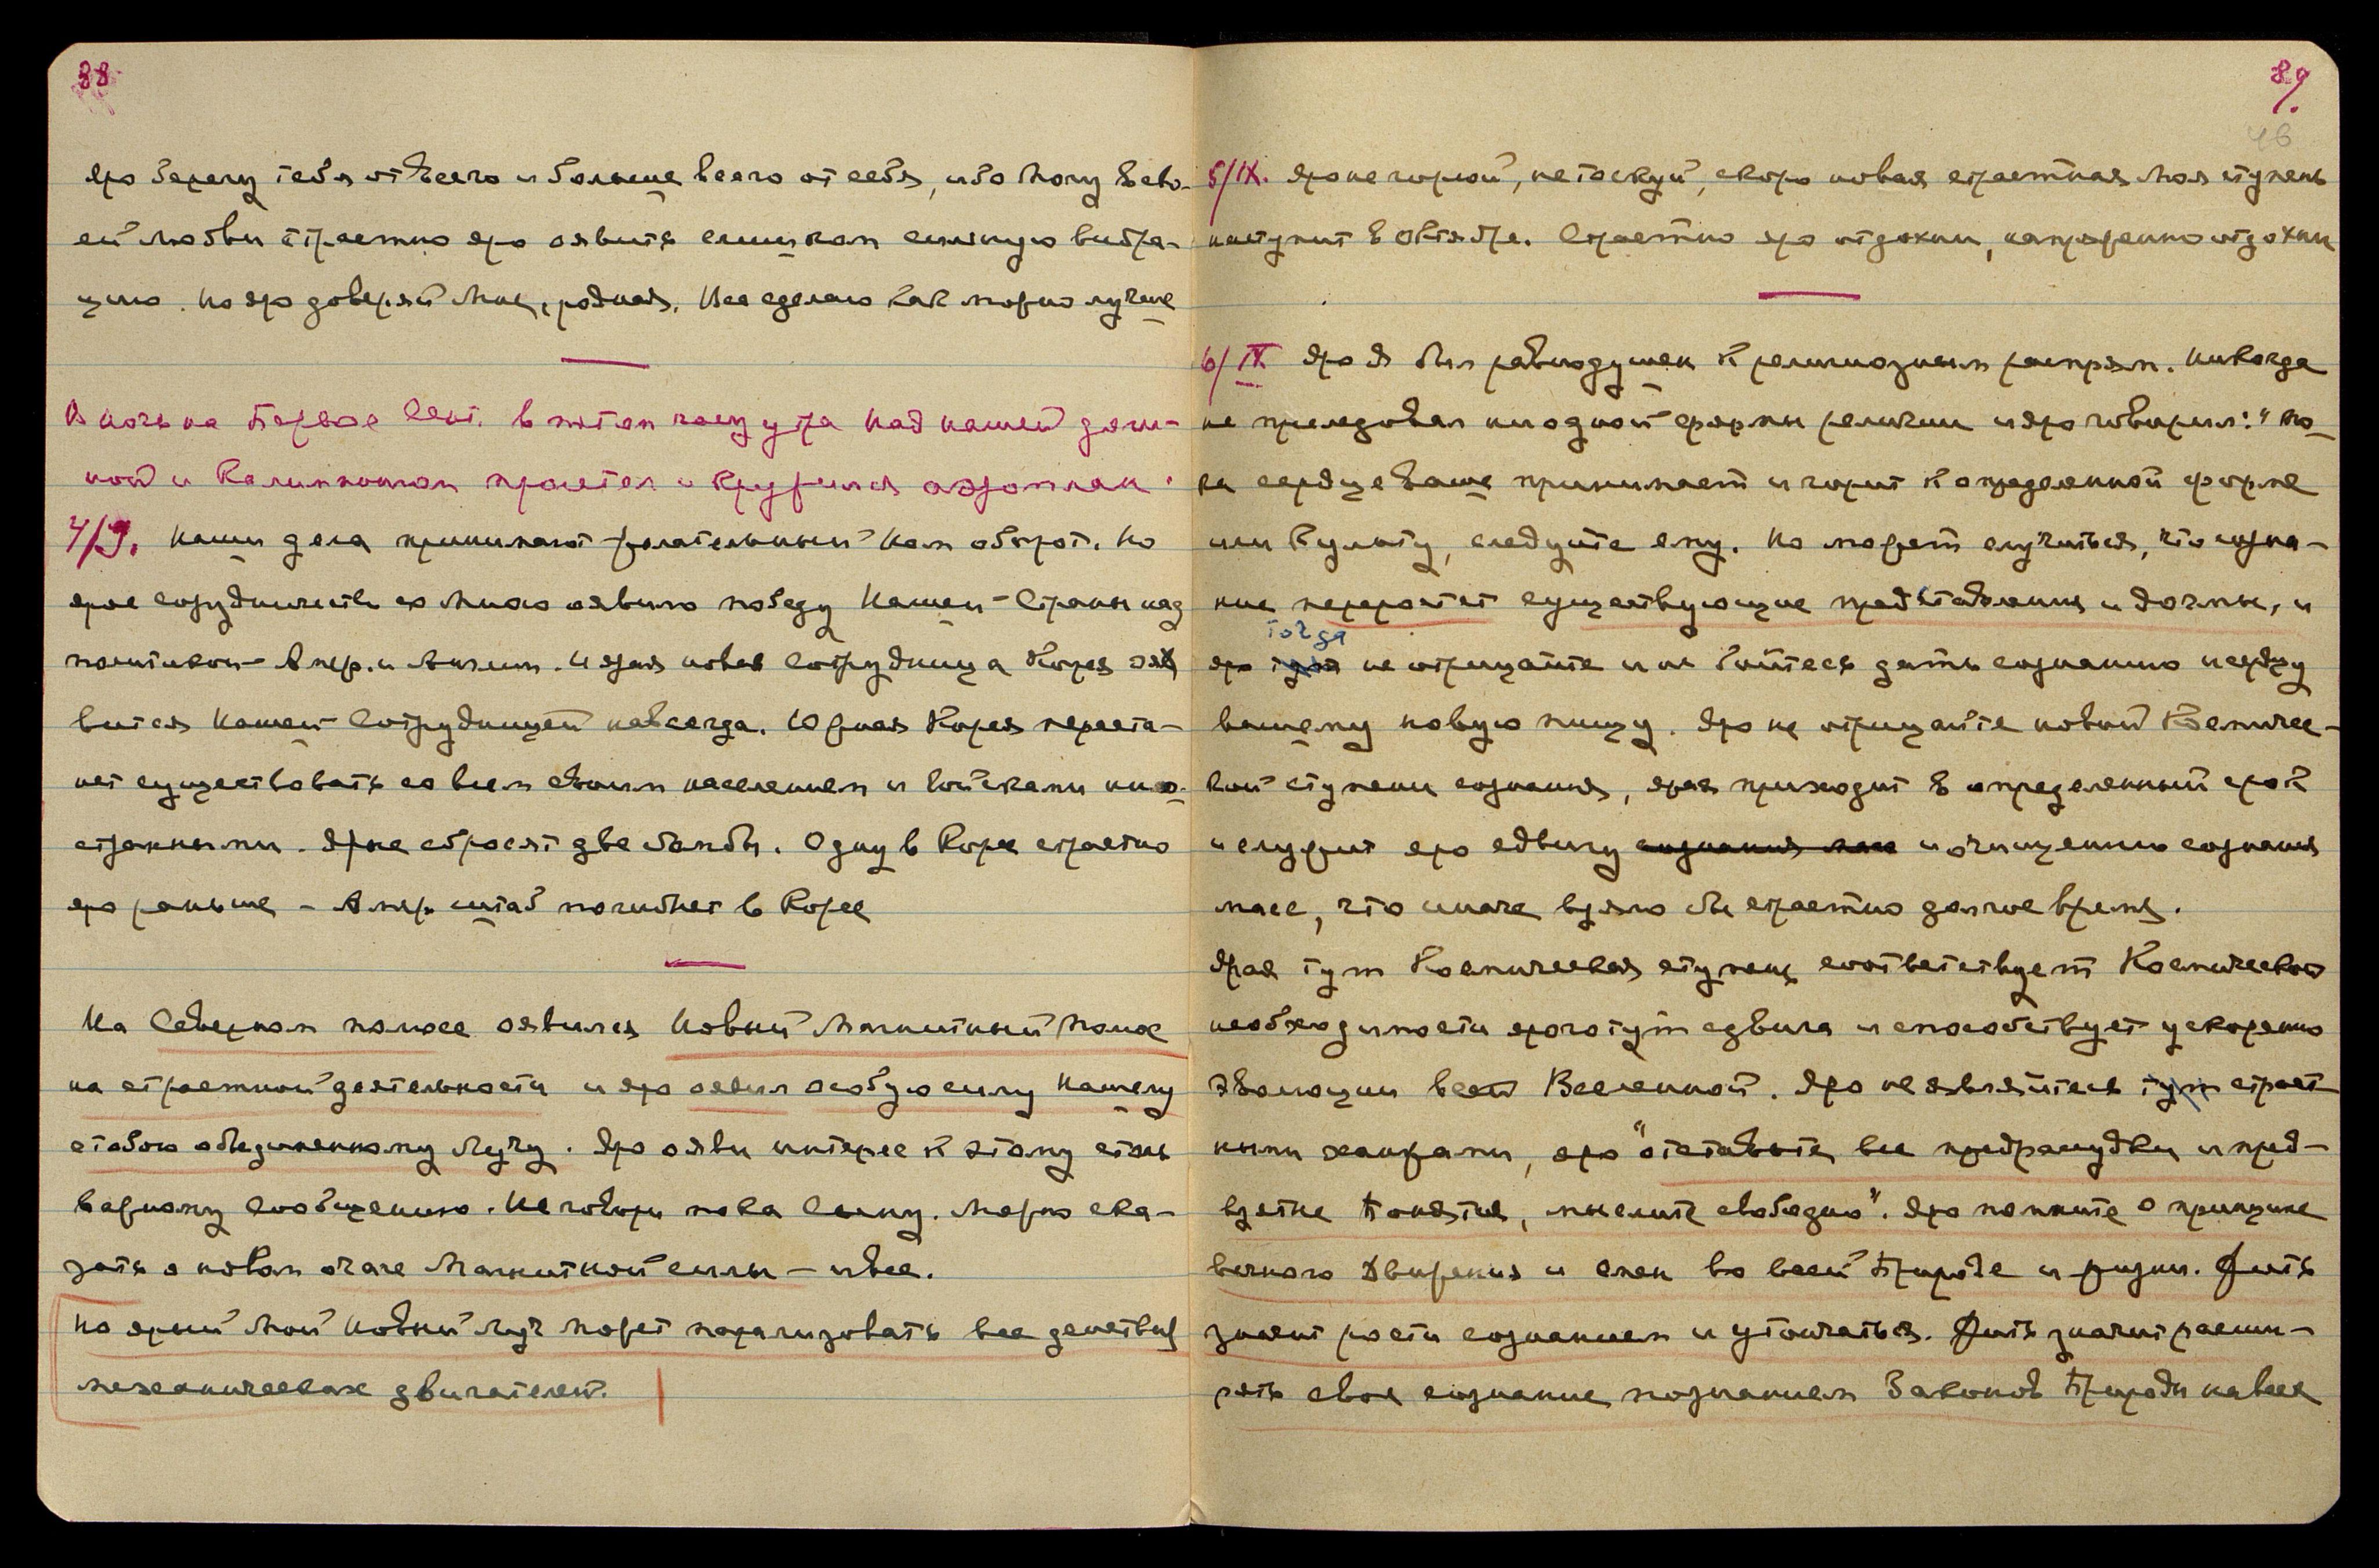 88
Яро берегу тебя от всего и больше всего от себя, ибо Могу в сво-
ей любви страстно яро оявить слишком сильную вибра-
цию. Но яро доверяй Мне, родная, Все сделаю как можно лучше
В ночь на Первое Сент. в пятом часу утра над нашей доли-
ной и Калимпонгом пролетел и кружился аэроплан.
4/9. Наши дела принимают желательный Нам оборот. Но
ярое сотрудничество со Мною оявило победу Нашей Страны над
политикой Амер. и Англии. И ярая новая Сотрудница Корея
вится Нашей Сотрудницей навсегда. Южная Корея переста-
нет существовать со всем своим населением и войсками ино-
странными. Ярые сбросят две бомбы. Одну в Корее страстно
яро раньше – Амер. штаб погибнет в Корее
На Северном полюсе оявился Новый Магнитный Полюс
на страстной деятельности и яро оявил особую силу Нашему
с тобою объединенному Лучу. Яро ояви интерес к этому столь
важному сообщению. Не говори пока Сыну. Можно ска-
зать о новом очаге Магнитной силы – и все.
Но ярый Мой Новый Луч может парализовать все действия
механических двигателей.
89.
46
5/IX. Яро не горюй, не тоскуй, скоро новая страстная Моя ступень
наступит в Октябре. Страстно яро отдохни, напряженно отдохни
6/IX Яро Я был равнодушен к религиозным распрям. Никогда
не преследовал ни одной формы религии и яро говорил: "По-
ка сердце ваше принимает и горит к определенной форме
или Культу, следуйте ему. Но может случиться, что созна-
ние перерастет существующие представления и догмы, и
тогда
яро не отрицайте и не бойтесь дать сознанию и сердцу
вашему новую пищу. Яро не отрицайте новой Космичес-
кой ступени сознания, ярая приходит в определенный срок
и служит яро сдвигу сознания масс и очищению сознания
масс, что иначе взяло бы страстно долгое время.
Ярая тут Космическая ступень соответствует Космической
необходимости ярого тут сдвига и способствует ускорению
Эволюции всей Вселенной. Яро не являйтесь тут страст
ными ханжами, яро "отставьте все предрассудки и пред-
взятые Понятия, мыслите свободно". Яро помните о принципе
вечного Движения и смен во всей Природе и жизни. Жить
значит расти сознанием и утончаться. Жить значит расши-
рять свое сознание познанием Законов Природы на всех